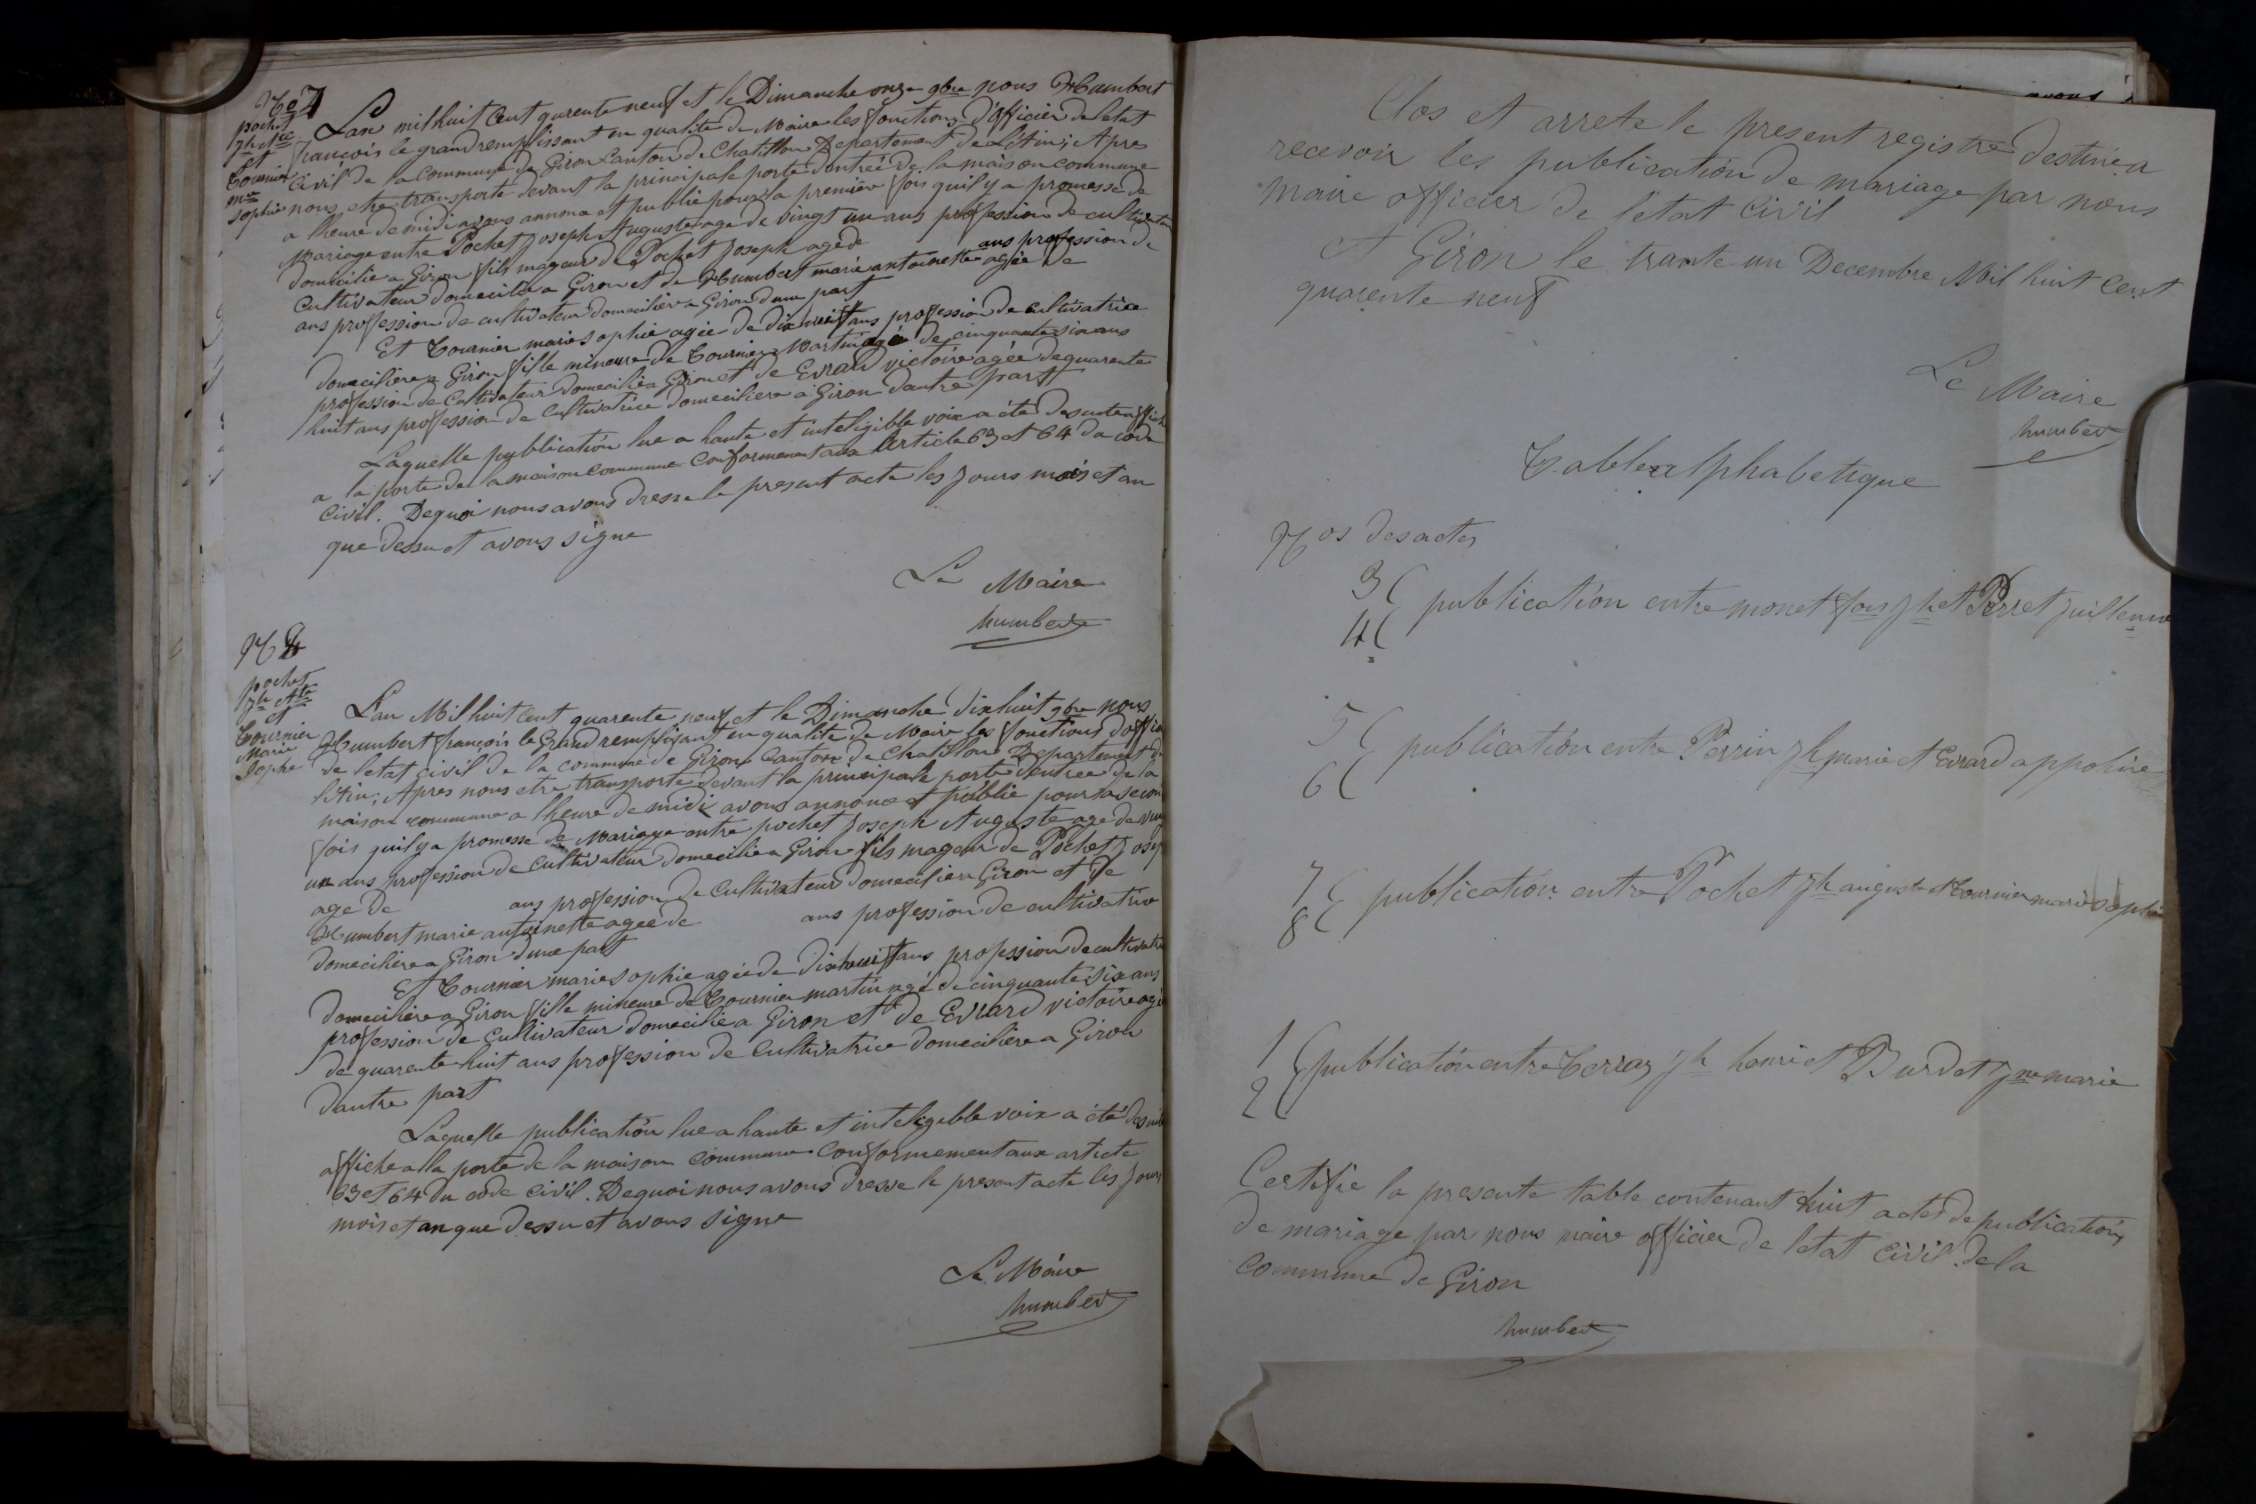 No 7
pochet
Jh Ate
et
Tournier
Mie
Sophie
Lan mil huit Cent qurente neuf et le Dimanche onze 9bre nous Humbert
françois le grand remplissant en qualite de Maire les fonctions d'officier de letat
Civil de la commune de Giron Canton de Chatillon Departement de L'Ain; Apres
nous etre transporte devant la principale porte dentrée de la maison commune
a lheure de midi avons annonce et publie pour la premiere fois quil y a promesse de
Mariage entre Pochet Joseph Auguste age de vingt un ans profession de cultivateur
domicilie a Giron fils mageur de Pochet Joseph agé de ans profession de
Cultivateur domicilie a Giron et de Humbert marie antoinette agée de
ans profession de cultivateur domiciliere a Giron dune part
Et Tournier marie Sophie agée de dix huit ans profession de cultivatrice
domeciliere a Giron fille mineure de Tournier Martin agé de cinquante six ans
profession de Cultivateur domecilié a Giron et de Evrard victoire agée de quarente
huit ans profession de Cultivatrice domeciliere a Giron dautre part
Laquelle publication lue a haute et inteligible voix a été desuite affiché
a la porte de la maison commune conformement aux Article 63 et 64 du code
Civil. Dequoi nous avons dresse le present acte les Jours mois et an
que dessu et avons signe
Le Maire
humbert
No 8
pochet
Jh Ate
et
Tournier
Marie
Sophe
Lan Mil huit cent quarente neuf et le Dimanche dix huit 9bre nous
Humbert françois le Grand remplissant en qualite de Maire les fonctions doffici
de letat civil de la commune de Giron Canton de Chatillon Departement de
l'Ain; Apres nous etre transporte devant la principale porte dentree de la
maison commune a lheure de midi avons annonce et publie pour la secon
fois quil y a promesse de Mariage entre pochet Joseph Auguste age de ving
un ans profession de cultivateur domecilie a Giron fils mageur de Pochet Josep
age de ans profession de Cultivateur domecilier a Giron et de
Humbert marie antoinette agee de ans profession de cultivatrice
domeciliere a Giron dune part
Et Tournier marie Sophie agée de dix huit ans profession de cultivatri
domeciliere a Giron fille mineure de Tournier martin agé de cinquante six ans
profession de Cultivateur domecilie a Giron et de Evrard victoire agé
de quarente huit ans profession de Cultivatrice domeciliere a Giron
dautre part
Laquelle publication lue a haute et inteligible voix a été desuite
affiche a la porte de la maison commune conformement aux article
63 et 64 du code civil. Dequoi nous avons dresse le present acte les Jours
mois et an que dessu et avons signe
Le Maire
humbert
Clos et arrete le present registre destine a
recevoir les publication de mariage par nous
Maire officier de l'etat Civil
A Giron le trante un Decembre Mil huit Cent
quarente neuf
Le Maire
humbert
Table alphabetique
Nos des actes
3 publication entre monet fois Jh et Perret Juillenne
4
5 publication entre Perrin Jh marie et Evrard appoline
6
7 publication entre Pochet Jh auguste et Tournier marie Sophie
8
1 publication entre Terraz Jh henri et Burdet Jne marie
2
Certifie la presente table contenant huit actes de publication
de mariage par nous maire officier de letat Civil de la
commune de Giron
humbert